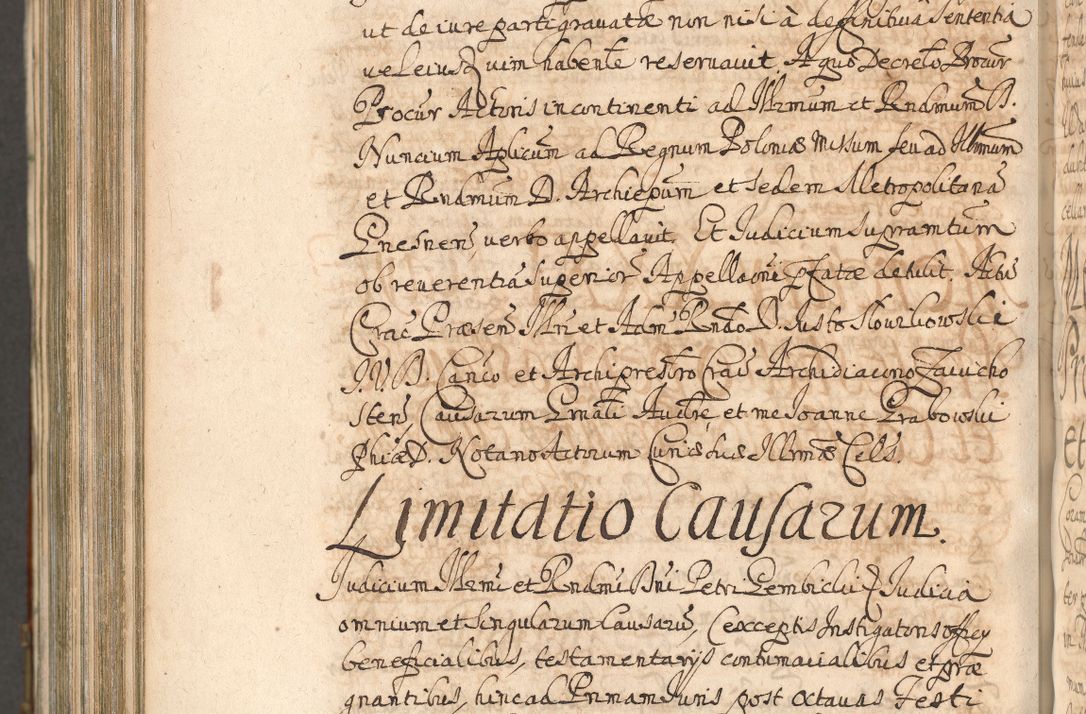 ut de iure parti gravatæ non nisi à deffinitiva Sententia
vel eius vim habente reservavit. A quo Decreto Procur
Procur Actoris in continenti ad Illmum et Rndmum D.
Nuncium Aplicum ad Regnum Poloniæ missum seu ad Illmum
et Rndmum D. Archiepum et sedem Metropolitanã
Gnesnen, verbo appellavit. Et Iudicium supramtum
ob reverentiã superior Appellaoni pfatæ detulit. Actis
Crac Præsen Illri et Adm Rndo D. Iusto Słowikowski
I.V.D. Canco et Archipresbro Crac Archidiacono Zawicho
sten, Causarum Gnali Audre, et me Ioanne Grabowski
Phiæ D. Notario Actorum Curiæ suæ Illmæ Cels.
Limitatio Causarum.
Iudicium Illmi et Rndmi Dni Petri Gembicki Iudicia
omnium et singularum causarũ, (exceptis Instigatoris officy
beneficialibus, testamentarijs contumacialibus et præ
gnantibus, hinc ad Primam Iuris post octavas Festi